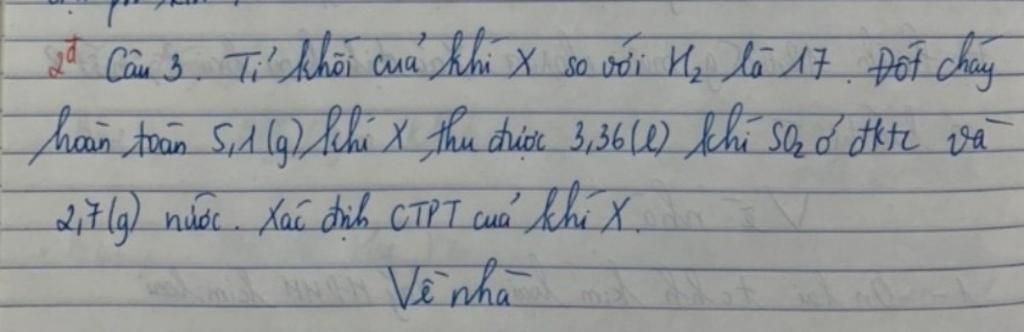 2đ Câu 3. Tỉ khối của khí X so với H₂ là 17. Đốt cháy
hoàn toàn 5,1(g) khí X, thu được 3,36(l) khí SO₂ ở đktc và
2,7(g) nước. Xác định CTPT của khí X.
Về nhà